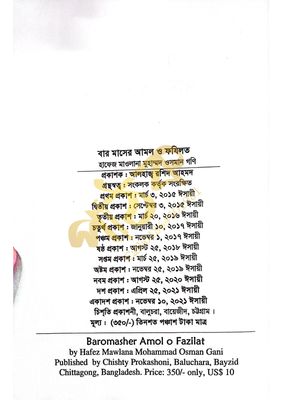 বার মাসের আমল ও ফযিলত
হাফেজ মাওলানা মুহাম্মদ ওসমান গণি
প্রকাশক : আলহাজ্ব রশিদ আহমদ
গ্রন্থস্বত্ব : সংকলক কর্তৃক সংরক্ষিত
প্রথম প্রকাশ : মার্চ ৩, ২০১৫ ঈসায়ী
দ্বিতীয় প্রকাশ : সেপ্টেম্বর ৩, ২০১৫ ঈসায়ী
তৃতীয় প্রকাশ : মার্চ ২০, ২০১৬ ঈসায়ী
চতুর্থ প্রকাশ : জানুয়ারী ১০, ২০১৭ ঈসায়ী
পঞ্চম প্রকাশ : নভেম্বর ১, ২০১৭ ঈসায়ী
ষষ্ঠ প্রকাশ : আগস্ট ২৫, ২০১৮ ঈসায়ী
সপ্তম প্রকাশ : মার্চ ২৫, ২০১৯ ঈসায়ী
অষ্টম প্রকাশ : নভেম্বর ২৫, ২০১৯ ঈসায়ী
নবম প্রকাশ : আগস্ট ২৫, ২০২০ ঈসায়ী
দশ প্রকাশ : এপ্রিল ২৫, ২০২১ ঈসায়ী
একাদশ প্রকাশ : নভেম্বর ১০, ২০২১ ঈসায়ী
চিশ্‌তি প্রকাশনী, বালুচরা, বায়েজীদ, চট্টগ্রাম।
মূল্য : (৩৫০/-) তিনশত পঞ্চাশ টাকা মাত্র
Baromasher Amol o Fazilat
by Hafez Mawlana Mohammad Osman Gani
Published by Chishty Prokashoni, Baluchara, Bayzid
Chittagong, Bangladesh. Price: 350/- only, US$ 10